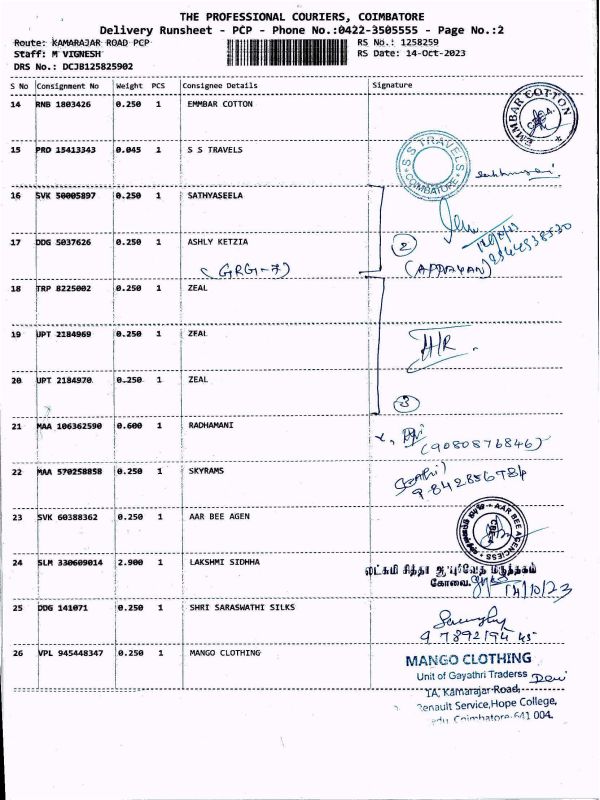 THE PROFESSIONAL COURIERS, COIMBATORE
Delivery Runsheet - PCP - Phone No.:0422-3505555 - Page No.:2
Route: KAMARAJAR ROAD PCP RS No.: 1258259
Staff: M VIGNESH RS Date: 14-Oct-2023
DRS No.: DCJB125825902
S No Consignment No Weight PCS Consignee Details Signature
14 RNB 1803426 0.250 1 EMMBAR COTTON
EMMBAR COTTON
15 PRO 15413343 0.045 1 S S TRAVELS
S S TRAVELS
COIMBATORE
16 SVK 50005897 0.250 1 SATHYASEELA
17 DDG 5037626 0.250 1 ASHLY KETZIA
2
(GRG-7) (APPAYAN)
18 TRP 8225002 0.250 1 ZEAL
19 UPT 2184969 0.250 1 ZEAL
H/R
20 UPT 2184970 0.250 1 ZEAL
3
21 MAA 106362590 0.600 1 RADHAMANI
(9080876846)
22 MAA 570258858 0.250 1 SKYRAMS
9842856784
23 SVK 60388362 0.250 1 AAR BEE AGEN
AAR BEE AGENCIESS
CBE-4
24 SLM 330609014 2.900 1 LAKSHMI SIDHHA
லட்சுமி சித்தா ஆயுர்வேத மருந்தகம்
கோவை.
14/10/23
25 DDG 141071 0.250 1 SHRI SARASWATHI SILKS
9789219445
26 VPL 945448347 0.250 1 MANGO CLOTHING
MANGO CLOTHING
Unit of Gayathri Traderss Devi
1A, Kamarajar Road,
Renault Service,Hope College,
Coimbatore-641 004.